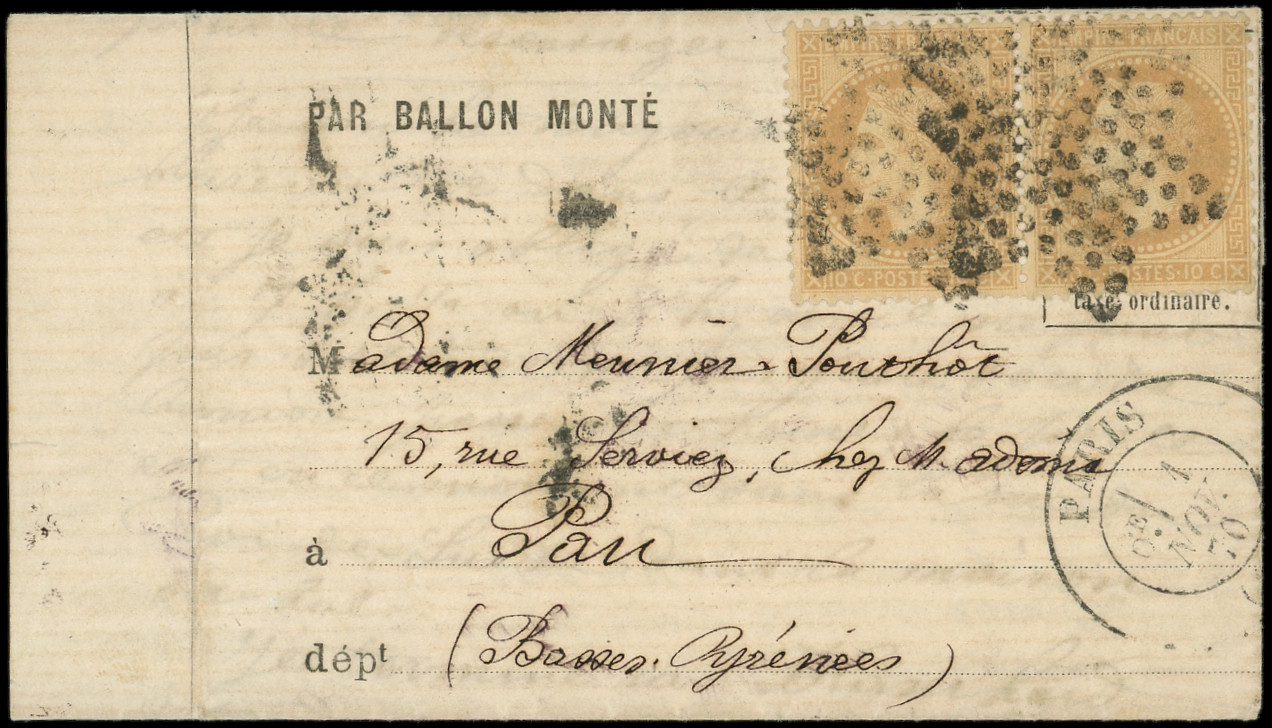 EMPIRE FRANÇAIS EMPIRE FRANÇAIS
PAR BALLON MONTÉ
10 C · POSTES POSTES · 10 C
taxe ordinaire.
Madame Meunier-Pouthôt
15, rue Serviez, chez M. adema
à Pau
dépt (Basses-Pyrénées)
PARIS
6E 1
NOV.
70